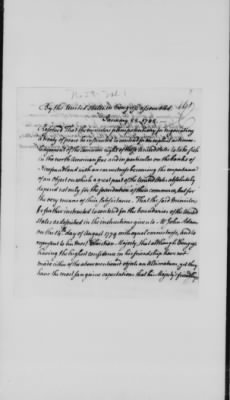 By the United States in Congress assembled
January 22. 1782
Resolved That the ministers plenipotentiary for negotiating
a treaty of peace be instructed to contend for an express acknow
ledgment of the common right of these United States to take fish
in the north American seas and in particular on the banks of
Newfoundland with an earnestness becoming the importance
of an object on which a great part of the United States absolutely
depend not only for the prosecution of their commerce, but for
the very means of their subsistence. That the said ministers
be further instructed to contend for the boundaries of the United
States as defined in the instructions given to Mr John Adams
on the 14th day of August 1779 with equal earnestness, and to
represent to his most Christian Majesty, that although Congress
having the highest confidence in his friendship have not
made either of the above mentioned objects an Ultimatum, yet they
have the most sanguine expectations that his Majesty's friendship